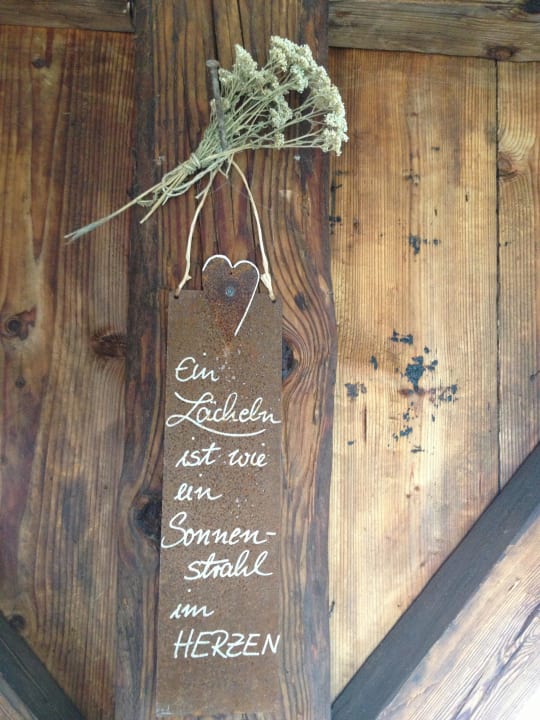 Ein
Lächeln
ist wie
ein
Sonnen-
strahl
im
HERZEN